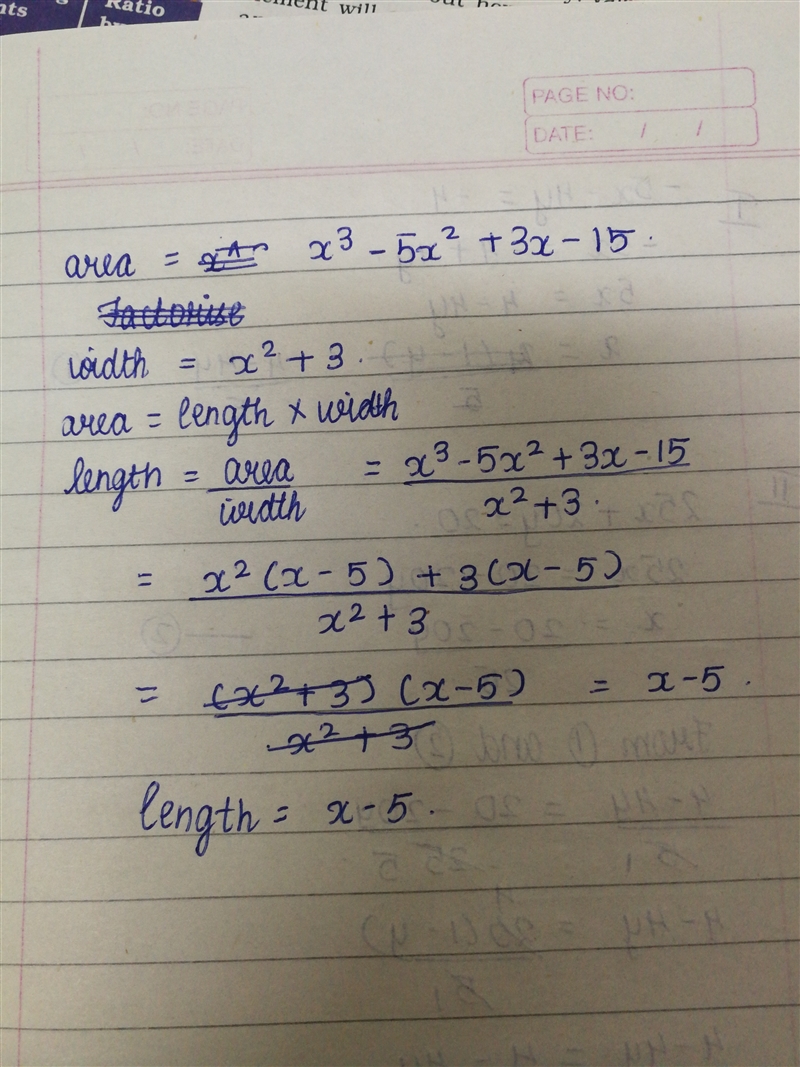 nts
Ratio
will
PAGE NO:
DATE: / /
area = x³ - 5x² + 3x - 15.
Factorise
width = x² + 3.
area = length × width
length = area/width = x³ - 5x² + 3x - 15/x² + 3.
= x²(x - 5) + 3(x - 5)/x² + 3
= (x² + 3)(x - 5)/x² + 3 = x - 5.
length = x - 5.